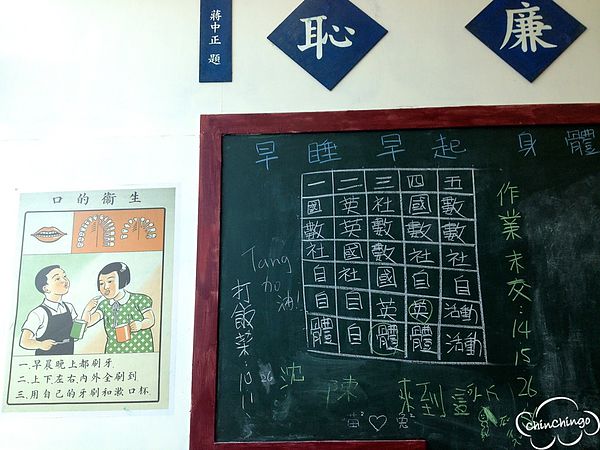 蔣中正 題
恥
廉
口的衞生
一.早晨晚上都刷牙
二.上下左右,內外全刷到
三.用自己的牙刷和漱口杯
早睡早起 身體
一 二 三 四 五
國 英 社 國 數
數 英 數 數 數
社 社 國 社 社
自 社 國 自 自
自 自 英 英 活動
體 自 體 體 活動
作業未交:14
15
26
Tang
加油!
打飯菜:10.11
沈
陳
來到
苗♡兔
chinchingo